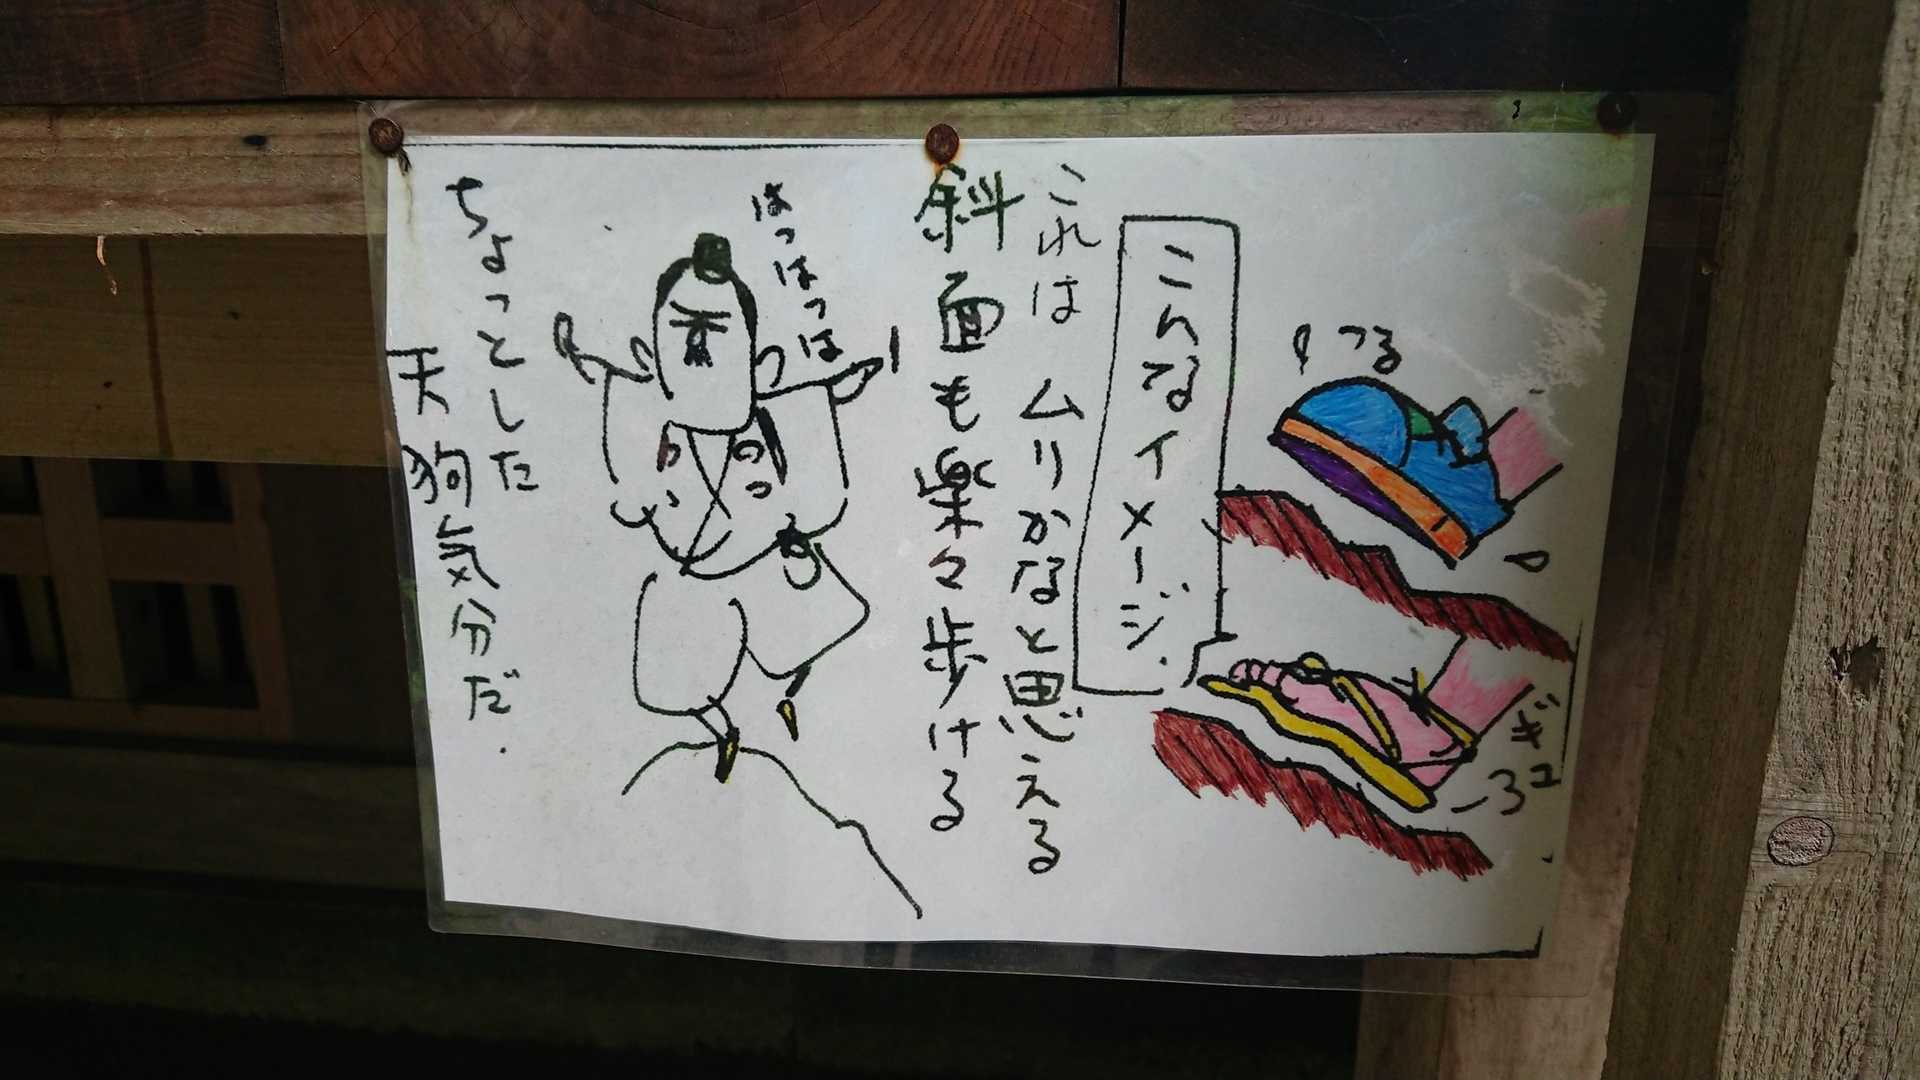 つる
ギュー
こんなイメージ.
これは ムリかなと思える
斜面も楽々歩ける
はっはっは
ちょっとした
天狗気分だ.